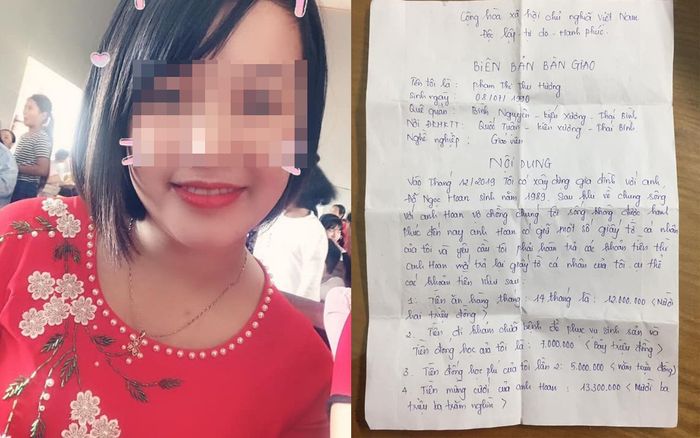 Cộng hòa xã hội chủ nghĩa Việt Nam
Độc lập - tự do - Hạnh phúc.
BIÊN BẢN BÀN GIAO
Tên tôi là : Phạm Thị Thu Hương
Sinh ngày : 08/07/1990
Quê quán : Bình Nguyên - Kiến Xương - Thái Bình
Nơi ĐKHKTT : Quốc Tuấn - Kiến Xương - Thái Bình
Nghề nghiệp : Giáo viên
NỘI DUNG
Vào Tháng 12/2019 Tôi có xây dựng gia đình với anh
Đỗ Ngọc Hoan sinh năm 1989. Sau khi về chung sống
với anh Hoan vợ chồng chúng tôi sống không được hạnh
phúc đến nay anh Hoan có giữ một số giấy tờ cá nhân
của tôi và yêu cầu tôi phải hoàn trả các khoản tiền thì
anh Hoan mới trả lại giấy tờ cá nhân của tôi. cụ thể
các khoản tiền như sau :
1. Tiền ăn hàng tháng : 14 tháng là : 12.000.000 < Mười
hai triệu đồng >
2. Tiền đi khám chữa bệnh để phục vụ sinh sản và
Tiền đóng học của tôi là : 7.000.000 < bảy triệu đồng >
3. Tiền đóng học phí của tôi lần 2: 5.000.000 < năm triệu đồng >
4 Tiền mừng cưới của anh Hoan : 13.300.000 < Mười ba
triệu ba trăm nghìn >